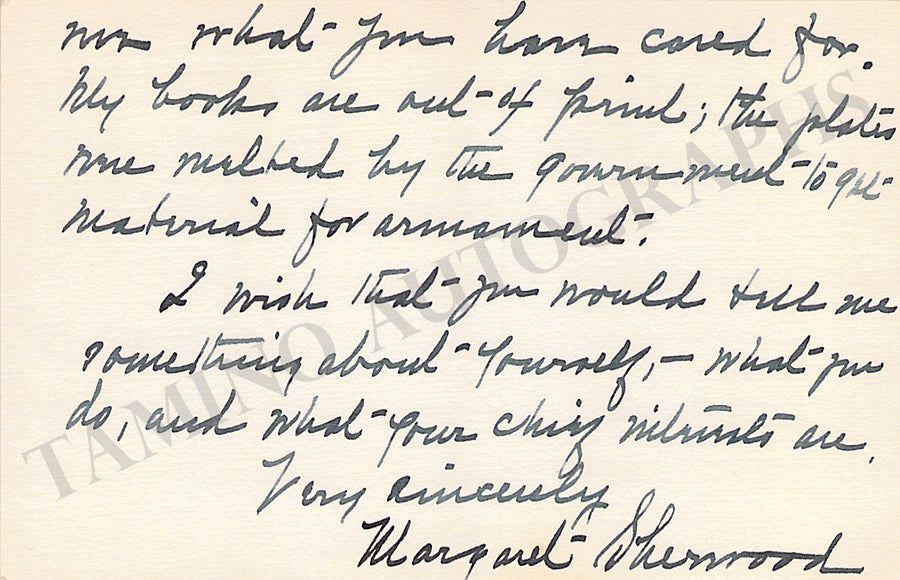 now what you have cared for.
My books are out-of print; the plates
were melted by the government to get
material for armament.
I wish that you would tell me
something about yourself, — what you
do, and what your chief interests are.
Very sincerely
Margaret Sherwood
TAMINO AUTOGRAPHS